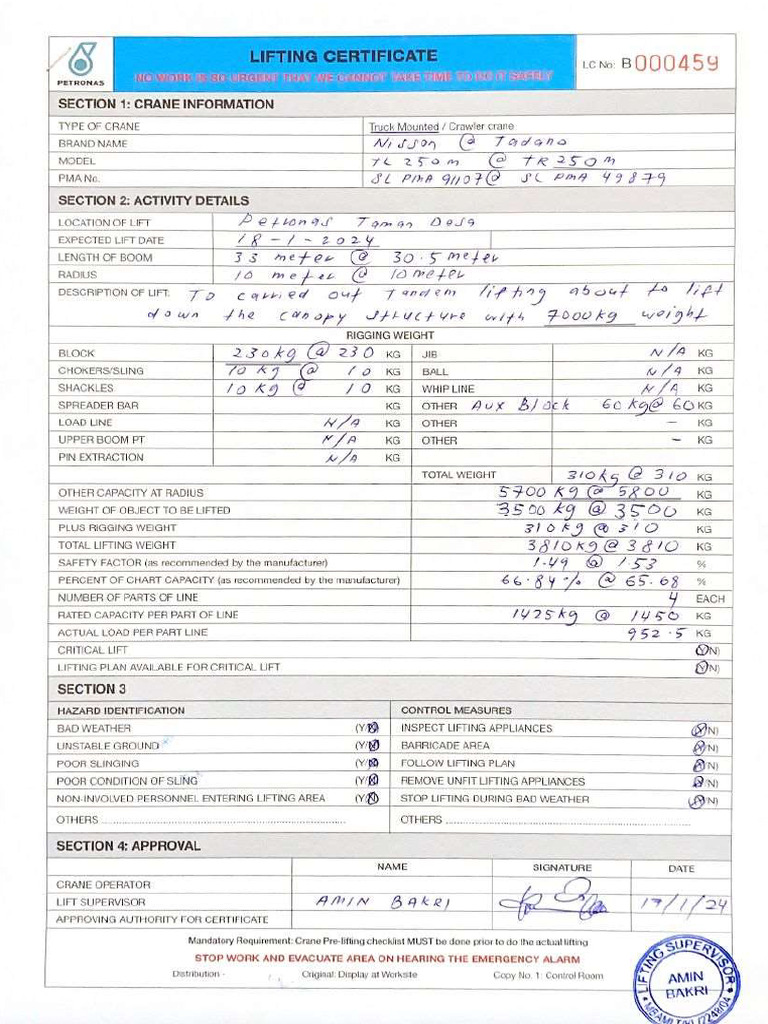 PETRONAS
LIFTING CERTIFICATE
NO WORK IS SO URGENT THAT WE CANNOT TAKE TIME TO DO IT SAFELY
LC No: B000459
SECTION 1: CRANE INFORMATION
TYPE OF CRANE Truck Mounted / Crawler crane
BRAND NAME Nisson @ Tadano
MODEL TL 250m @ TR 250m
PMA No. SL PMA 91107 @ SL PMA 49879
SECTION 2: ACTIVITY DETAILS
LOCATION OF LIFT Petronas Taman Desa
EXPECTED LIFT DATE 18-1-2024
LENGTH OF BOOM 33 meter @ 30.5 meter
RADIUS 10 meter @ 10 meter
DESCRIPTION OF LIFT: TO carried out Tandem lifting about to lift
down the canopy structure with 7000kg weight
RIGGING WEIGHT
BLOCK 230kg @ 230 KG JIB N/A KG
CHOKERS/SLING 10 kg @ 10 KG BALL N/A KG
SHACKLES 10 kg @ 10 KG WHIP LINE N/A KG
SPREADER BAR KG OTHER Aux Block 60 kg @ 60 KG
LOAD LINE N/A KG OTHER - KG
UPPER BOOM PT N/A KG OTHER - KG
PIN EXTRACTION N/A KG
TOTAL WEIGHT 310kg @ 310 KG
OTHER CAPACITY AT RADIUS 5700 kg @ 5800 KG
WEIGHT OF OBJECT TO BE LIFTED 3500 kg @ 3500 KG
PLUS RIGGING WEIGHT 310 kg @ 310 KG
TOTAL LIFTING WEIGHT 3810kg @ 3810 KG
SAFETY FACTOR (as recommended by the manufacturer) 1.49 @ 1.53 %
PERCENT OF CHART CAPACITY (as recommended by the manufacturer) 66.84% @ 65.68 %
NUMBER OF PARTS OF LINE 4 EACH
RATED CAPACITY PER PART OF LINE 1425kg @ 1450 KG
ACTUAL LOAD PER PART LINE 952.5 KG
CRITICAL LIFT (Y/N)
LIFTING PLAN AVAILABLE FOR CRITICAL LIFT (Y/N)
SECTION 3
HAZARD IDENTIFICATION CONTROL MEASURES
BAD WEATHER (Y/N) INSPECT LIFTING APPLIANCES (Y/N)
UNSTABLE GROUND (Y/N) BARRICADE AREA (Y/N)
POOR SLINGING (Y/N) FOLLOW LIFTING PLAN (Y/N)
POOR CONDITION OF SLING (Y/N) REMOVE UNFIT LIFTING APPLIANCES (Y/N)
NON-INVOLVED PERSONNEL ENTERING LIFTING AREA (Y/N) STOP LIFTING DURING BAD WEATHER (Y/N)
OTHERS OTHERS
SECTION 4: APPROVAL
NAME SIGNATURE DATE
CRANE OPERATOR
LIFT SUPERVISOR AMIN BAKRI 17/1/24
APPROVING AUTHORITY FOR CERTIFICATE
Mandatory Requirement: Crane Pre-lifting checklist MUST be done prior to do the actual lifting
STOP WORK AND EVACUATE AREA ON HEARING THE EMERGENCY ALARM
Distribution - Original: Display at Worksite Copy No. 1: Control Room
LIFTING SUPERVISOR
AMIN
BAKRI